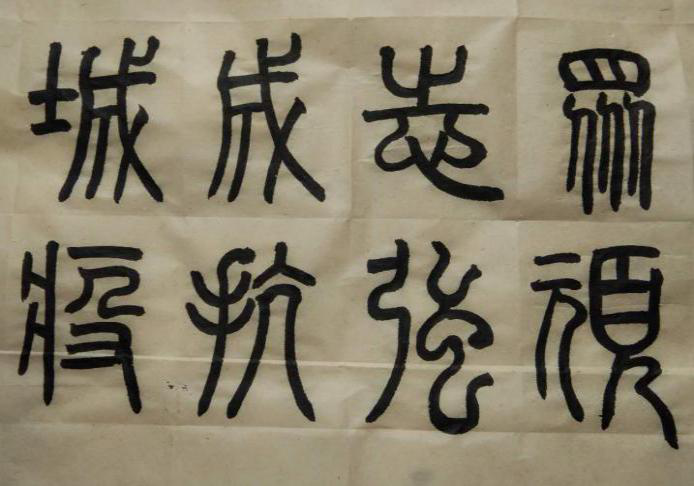 眾志成城
頑強抗疫